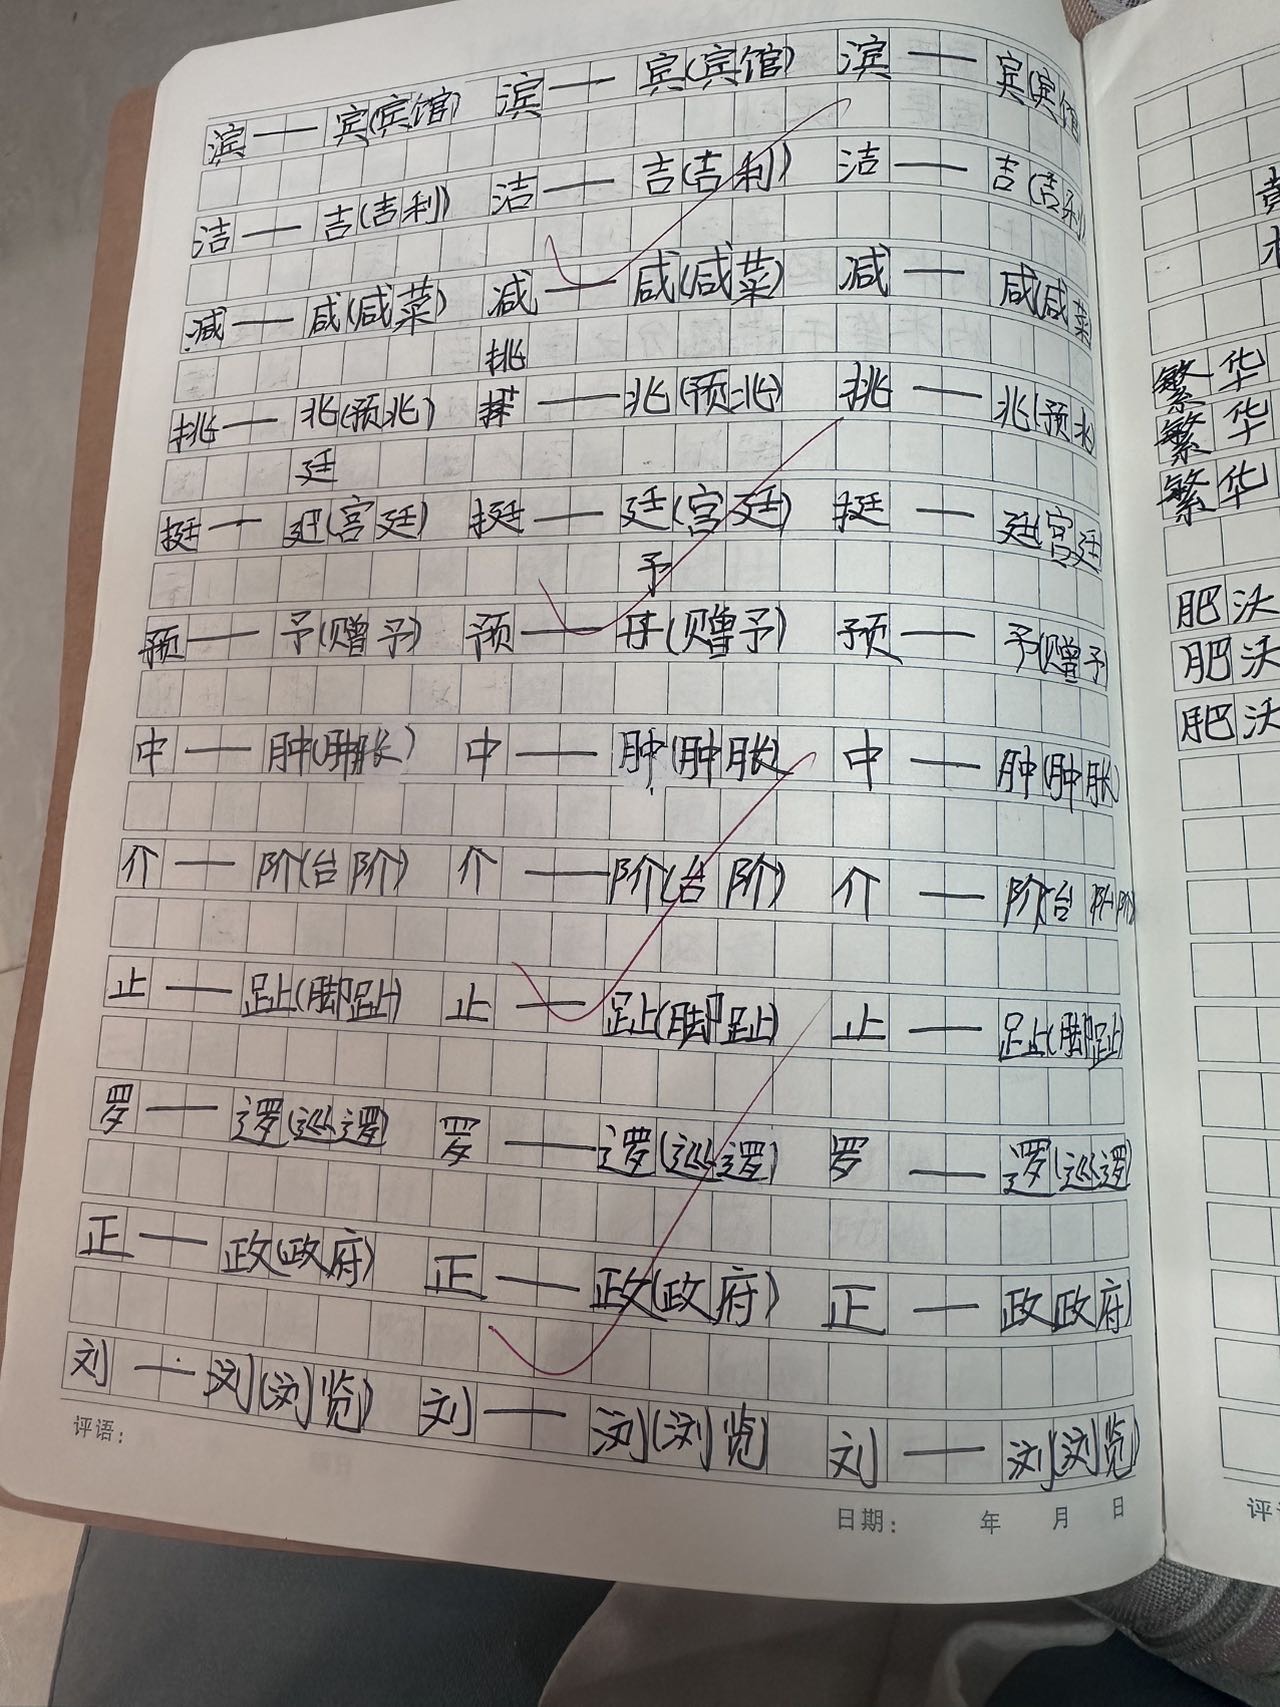 滨——宾(宾馆) 滨——宾(宾馆) 滨——宾(宾馆)
洁——吉(吉利) 洁——吉(吉利) 洁——吉(吉利)
减——咸(咸菜) 减——咸(咸菜) 减——咸(咸菜)
挑
挑——兆(预兆) ——兆(预兆) 挑——兆(预兆)
廷
挺——(宫廷) 挺——廷(宫廷) 挺——廷(宫廷
予
预——予(赠予) 预——(赠予) 预——予(赠予
中——肿(肿胀) 中——肿(肿胀) 中——肿(肿胀)
介——阶(台阶) 介——阶(台阶) 介——阶(台阶)
止——趾(脚趾) 止——趾(脚趾) 止——趾(脚趾)
罗——逻(巡逻) 罗——逻(巡逻) 罗——逻(巡逻)
正——政(政府) 正——政(政府) 正——政(政府)
刘——浏(浏览) 刘——浏(浏览) 刘——浏(浏览)
评语：
日期： 年 月 日
繁华
繁华
繁华
肥沃
肥沃
肥沃
评